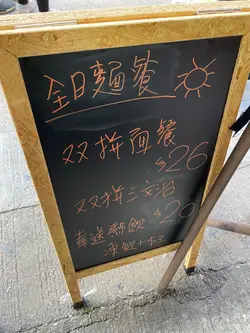 全日麵餐
双拼面餐
$26
双拼三文治
$20
奉送熱飲
凍飲+$3